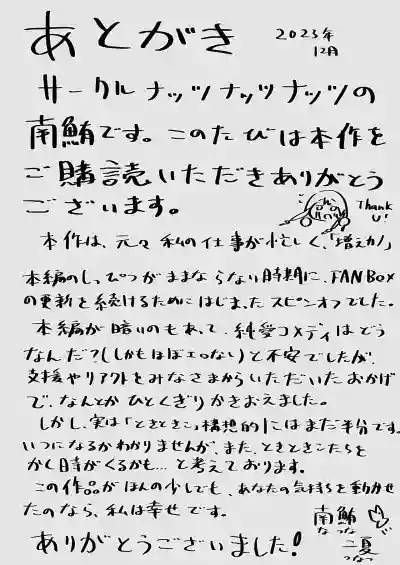 あとがき
2023年
12月
サークルナッツナッツナッツの
南鮪です。このたびは本作を
ご購読いただきありがとう
ございます。
Thank
U!
本作は、元々私の仕事が忙しく、「増えカノ」
本編のしっぴつがままならない時期に、FANBOX
の更新を続けるためにはじまったスピンオフでした。
本編が暗いのもあって、純愛コメディはどう
なんだ?(しかもほぼエロない)と不安でしたが、
支援やリアクトをみなさまからいただいたおかげ
で、なんとかひとくぎりかきおえました。
しかし、実は「ときとき」構想的にはまだ半分です。
いつになるかわかりませんが、また、ときときこたちを
かく日時がくるかも…と考えております。
この作品がほんの少しでも、あなたの気持ちを動かせ
たのなら、私は幸せです。
南鮪
なつな
二夏
つなつ
ありがとうございました!